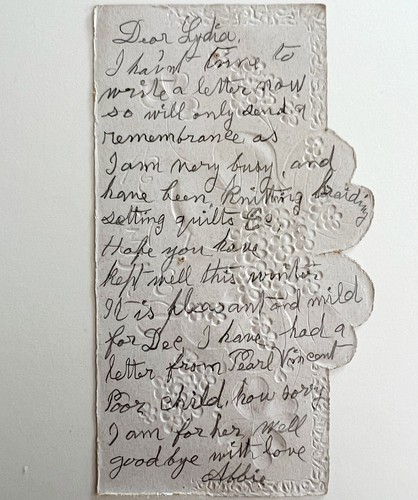 Dear Lydia,
I hav'nt time to
write a letter now
so will only send a
remembrance as
I am very busy, and
have been, knitting braiding
setting quilts &c,
Hope you have
kept well this winter.
It is pleasant and mild
for Dec, I have had a
letter from Pearl Vincent
Poor child, how sorry
I am for her, well
good bye with love
Abbie